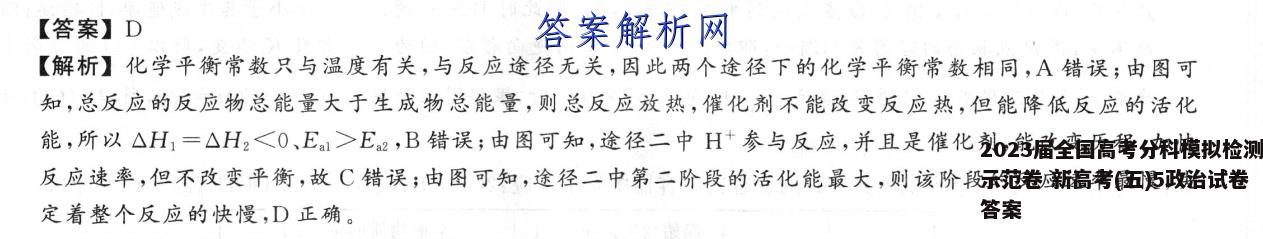 【答案】D
答案解析网
【解析】化学平衡常数只与温度有关,与反应途径无关,因此两个途径下的化学平衡常数相同,A 错误;由图可
知,总反应的反应物总能量大于生成物总能量,则总反应放热,催化剂不能改变反应热,但能降低反应的活化
能,所以 ΔH₁=ΔH₂<0、Eₐ₁>Eₐ₂,B 错误;由图可知,途径二中 H⁺ 参与反应,并且是催化剂,能改变历程,加快
反应速率,但不改变平衡,故 C 错误;由图可知,途径二中第二阶段的活化能最大,则该阶段
定着整个反应的快慢,D 正确。
2023届全国高考分科模拟检测
示范卷 新高考(五)5政治试卷
答案